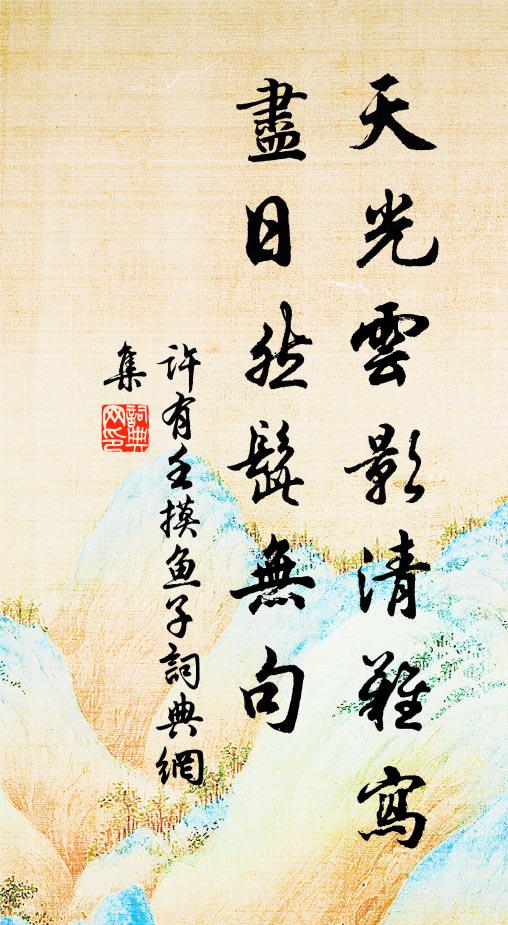 天光雲影清難寫
盡日然髭無句
許有壬摸魚子詞典網
集
詞典网印